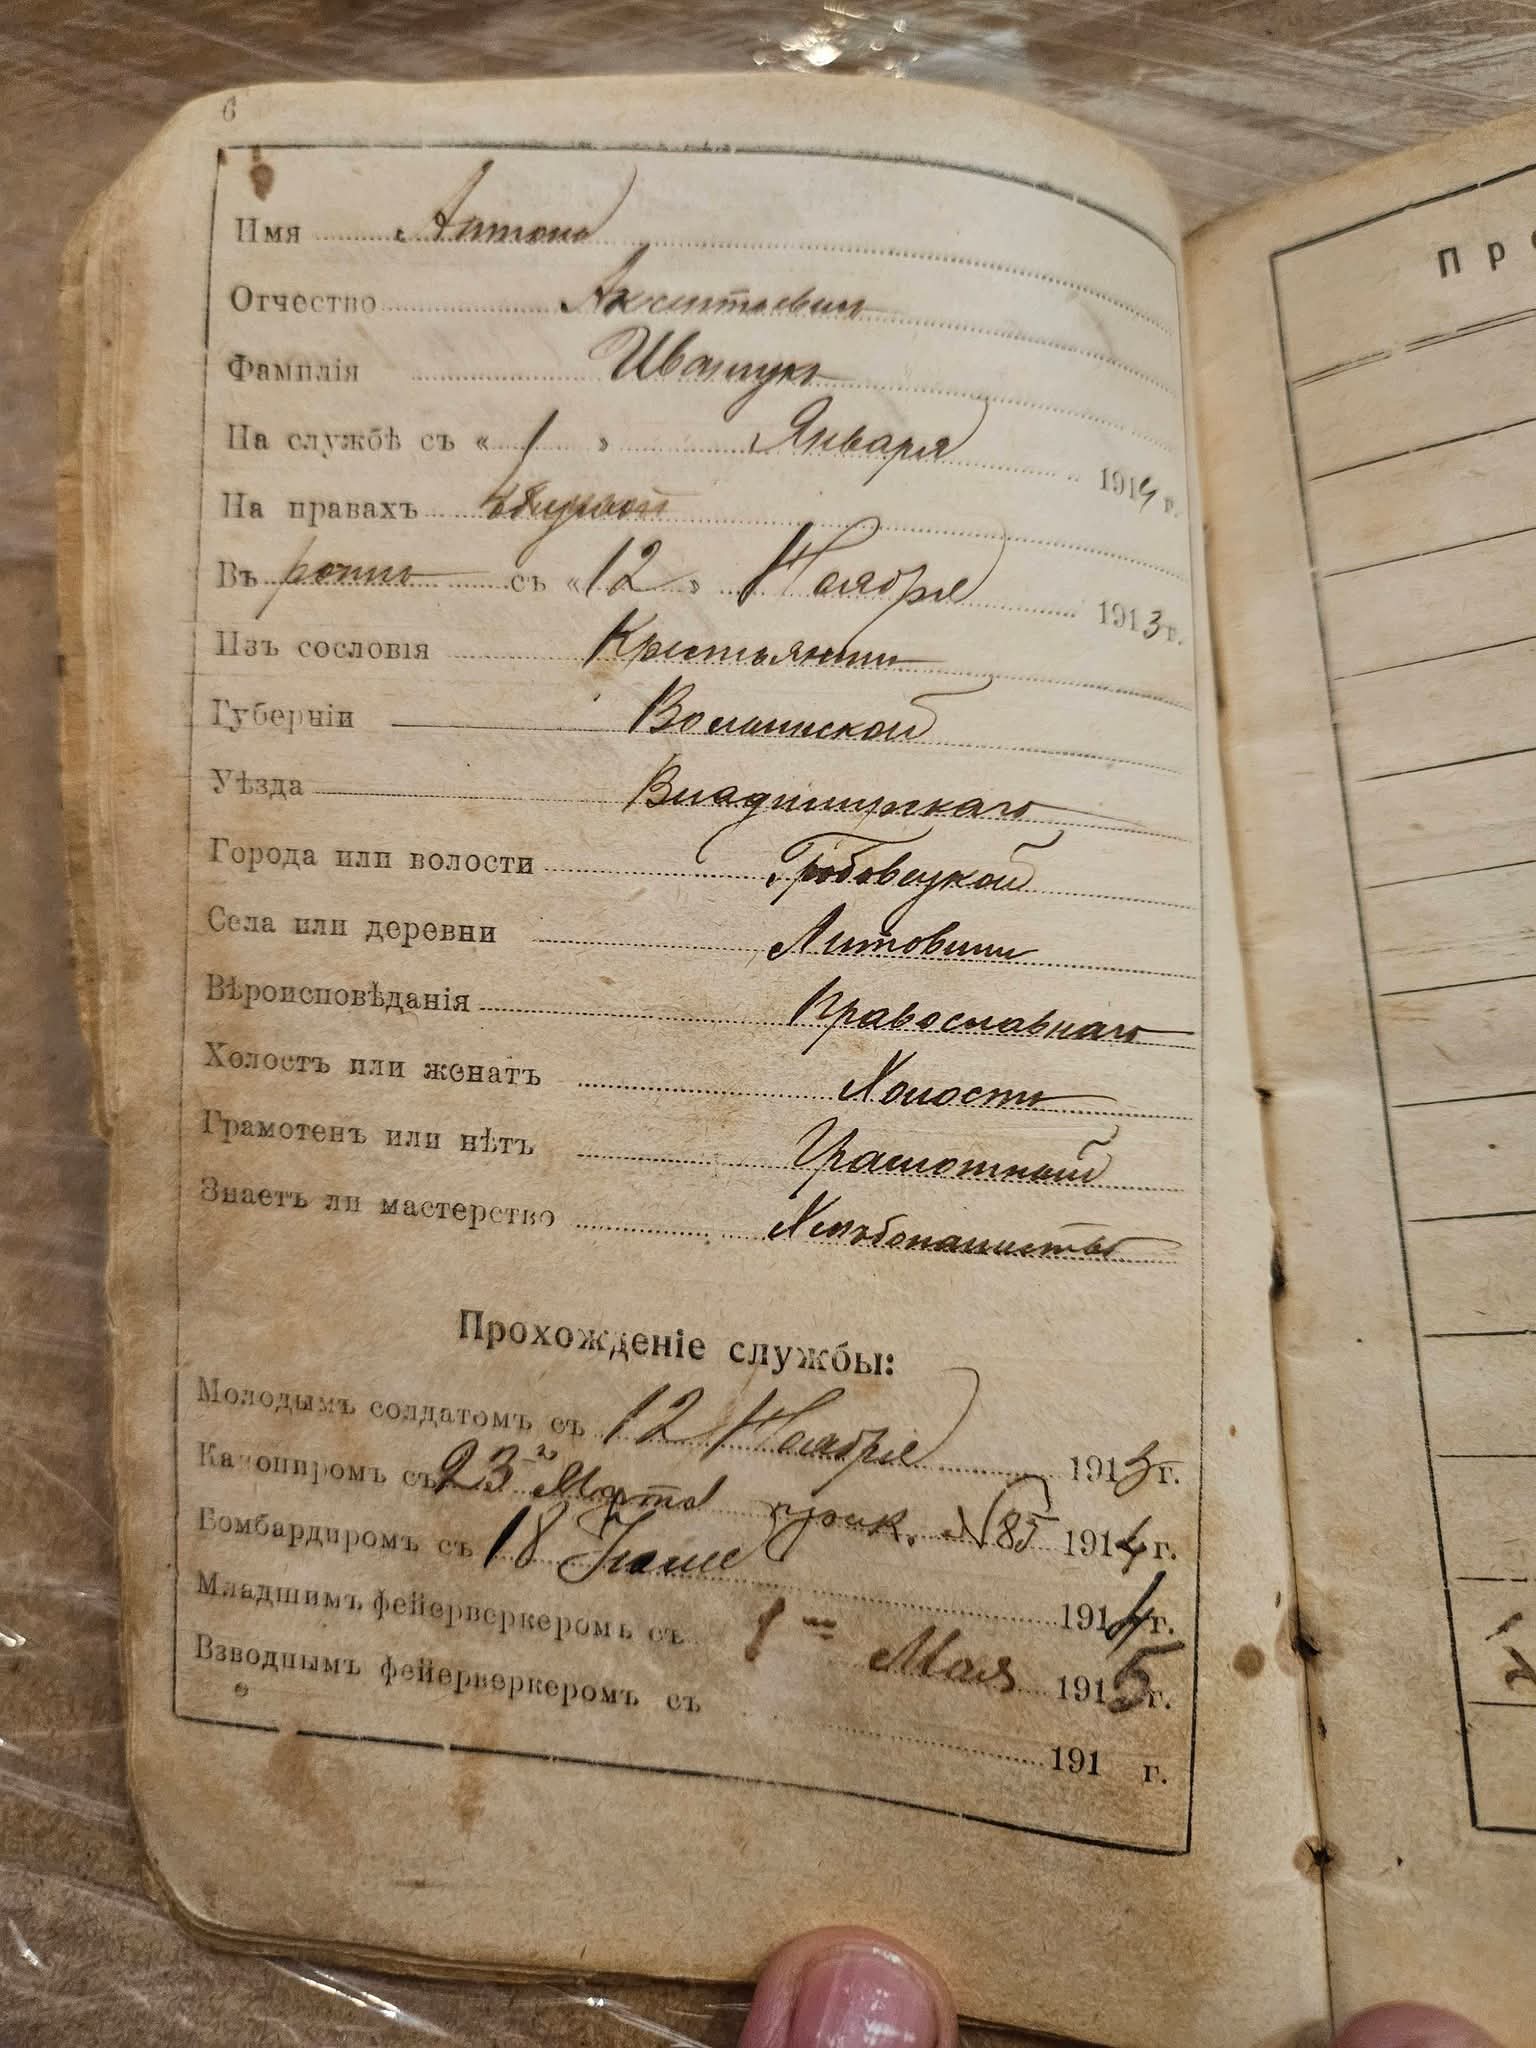 6
Имя Антонъ
Отчество Аксентьевичъ
Фамилія Иващукъ
На службѣ съ « 1 » Января 1914 г.
На правахъ
Въ ротѣ съ « 12 » Ноября 1913 г.
Изъ сословія Крестьянинъ
Губерніи Волынской
Уѣзда Владимірскаго
Города или волости Грибовецкой
Села или деревни Литовижъ
Вѣроисповѣданія Православнаго
Холостъ или женатъ Холостъ
Грамотенъ или нѣтъ Грамотный
Знаетъ ли мастерство Хлѣбопашество
Прохожденіе службы:
Молодымъ солдатомъ съ 12 Ноября 1913 г.
Канониромъ съ 23 Марта прик. №85 1914 г.
Бомбардиромъ съ 18 1914 г.
Младшимъ фейерверкеромъ съ 1 Мая 1915 г.
Взводнымъ фейерверкеромъ съ 191 г.